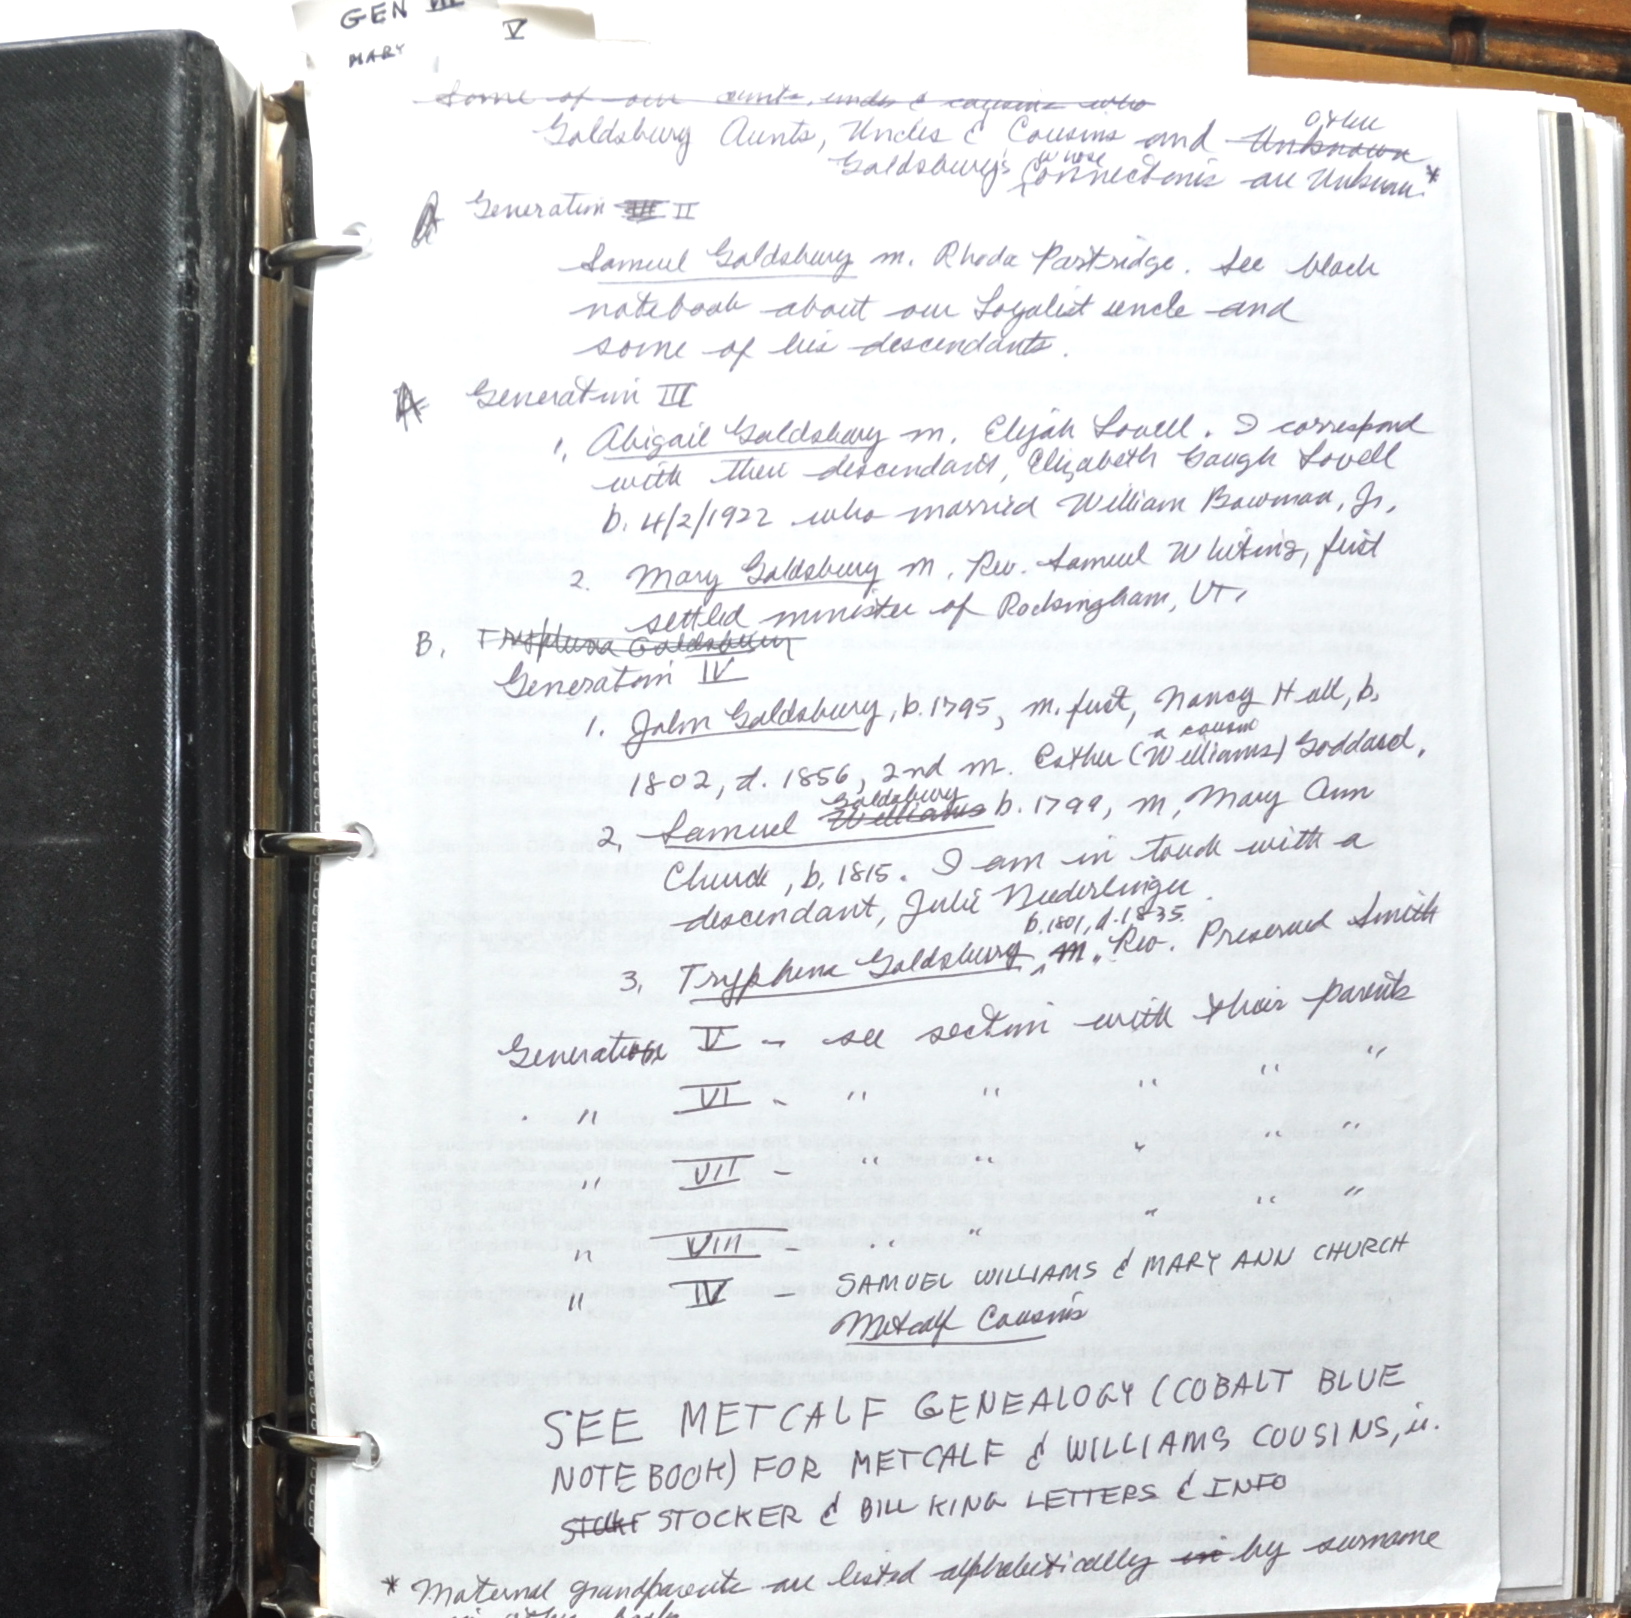 GEN III
V
MARY
Some of our aunts, uncles & cousins who
Goldsbury Aunts, Uncles & Cousins and Unknown other
Goldsbury's whose Connections are Unknown*
A Generation III II
Samuel Goldsbury m. Rhoda Partridge. See black
notebook about our Loyalist uncle and
some of his descendants.
A Generation III
1. Abigail Goldsbury m. Elijah Lovell. I correspond
with their descendant, Elizabeth Gaugh Lovell
b. 4/2/1922 who married William Bowman, Jr.
2. Mary Goldsbury m. Rev. Samuel Whiting, first
settled minister of Rockingham, VT.
B. Tryphena Goldsbury
Generation IV
1. John Goldsbury, b. 1795, m. first, Nancy Hall, b.
1802, d. 1856, 2nd m. Esther (Williams) a cousin Goddard.
2. Samuel Williams Goldsbury b. 1799, m. Mary Ann
Church, b. 1815. I am in touch with a
descendant, Julie Niederlinger.
3. Tryphena Goldsbury, b. 1801, d. 1835. m. Rev. Preserved Smith
Generation V - see section with their parents
" VI - " " " " "
" VII - " " " " "
" VIII - " " " " "
" IV - SAMUEL WILLIAMS & MARY ANN CHURCH
Metcalf Cousins
SEE METCALF GENEALOGY (COBALT BLUE
NOTEBOOK) FOR METCALF & WILLIAMS COUSINS, ie.
STOCKER & BILL KING LETTERS & INFO
* Maternal grandparents are listed alphabetically in by surname